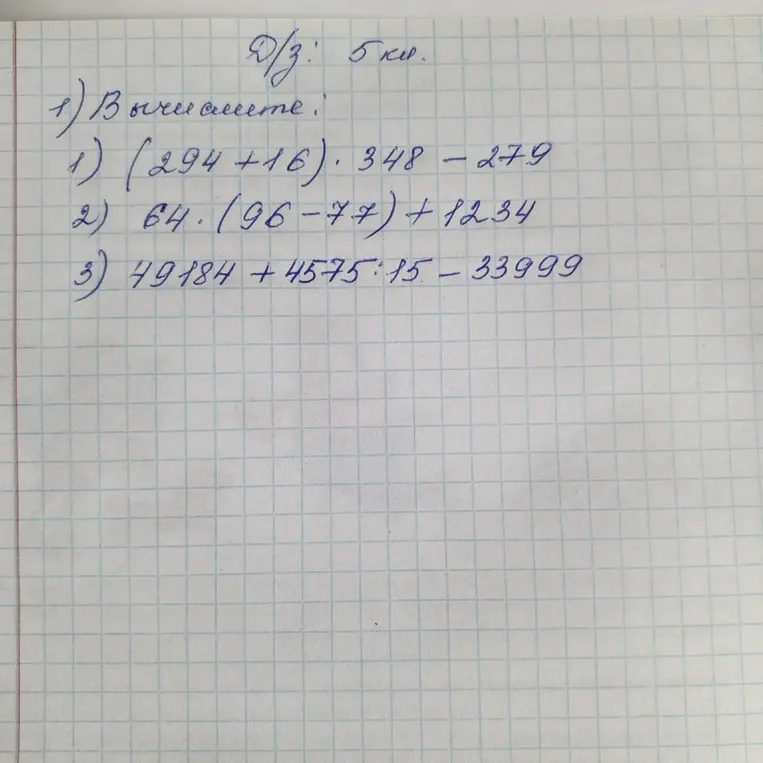 Д/з: 5 кл.
1) Вычислите:
1) (294 + 16) · 348 - 279
2) 64 · (96 - 77) + 1234
3) 49184 + 4575 : 15 - 33999